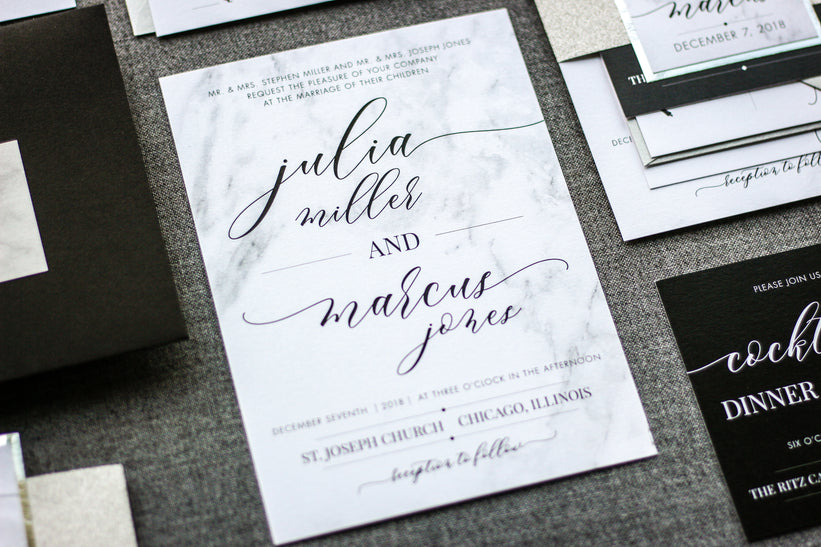 MR. & MRS. STEPHEN MILLER AND MR. & MRS. JOSEPH JONES
REQUEST THE PLEASURE OF YOUR COMPANY
AT THE MARRIAGE OF THEIR CHILDREN
julia
miller
AND
marcus
jones
DECEMBER SEVENTH | 2018 | AT THREE O'CLOCK IN THE AFTERNOON
ST. JOSEPH CHURCH CHICAGO, ILLINOIS
reception to follow
marcus
DECEMBER 7, 2018
TH
DEC
reception to foll
PLEASE JOIN US
cockt
DINNER
SIX O'C
THE RITZ CA